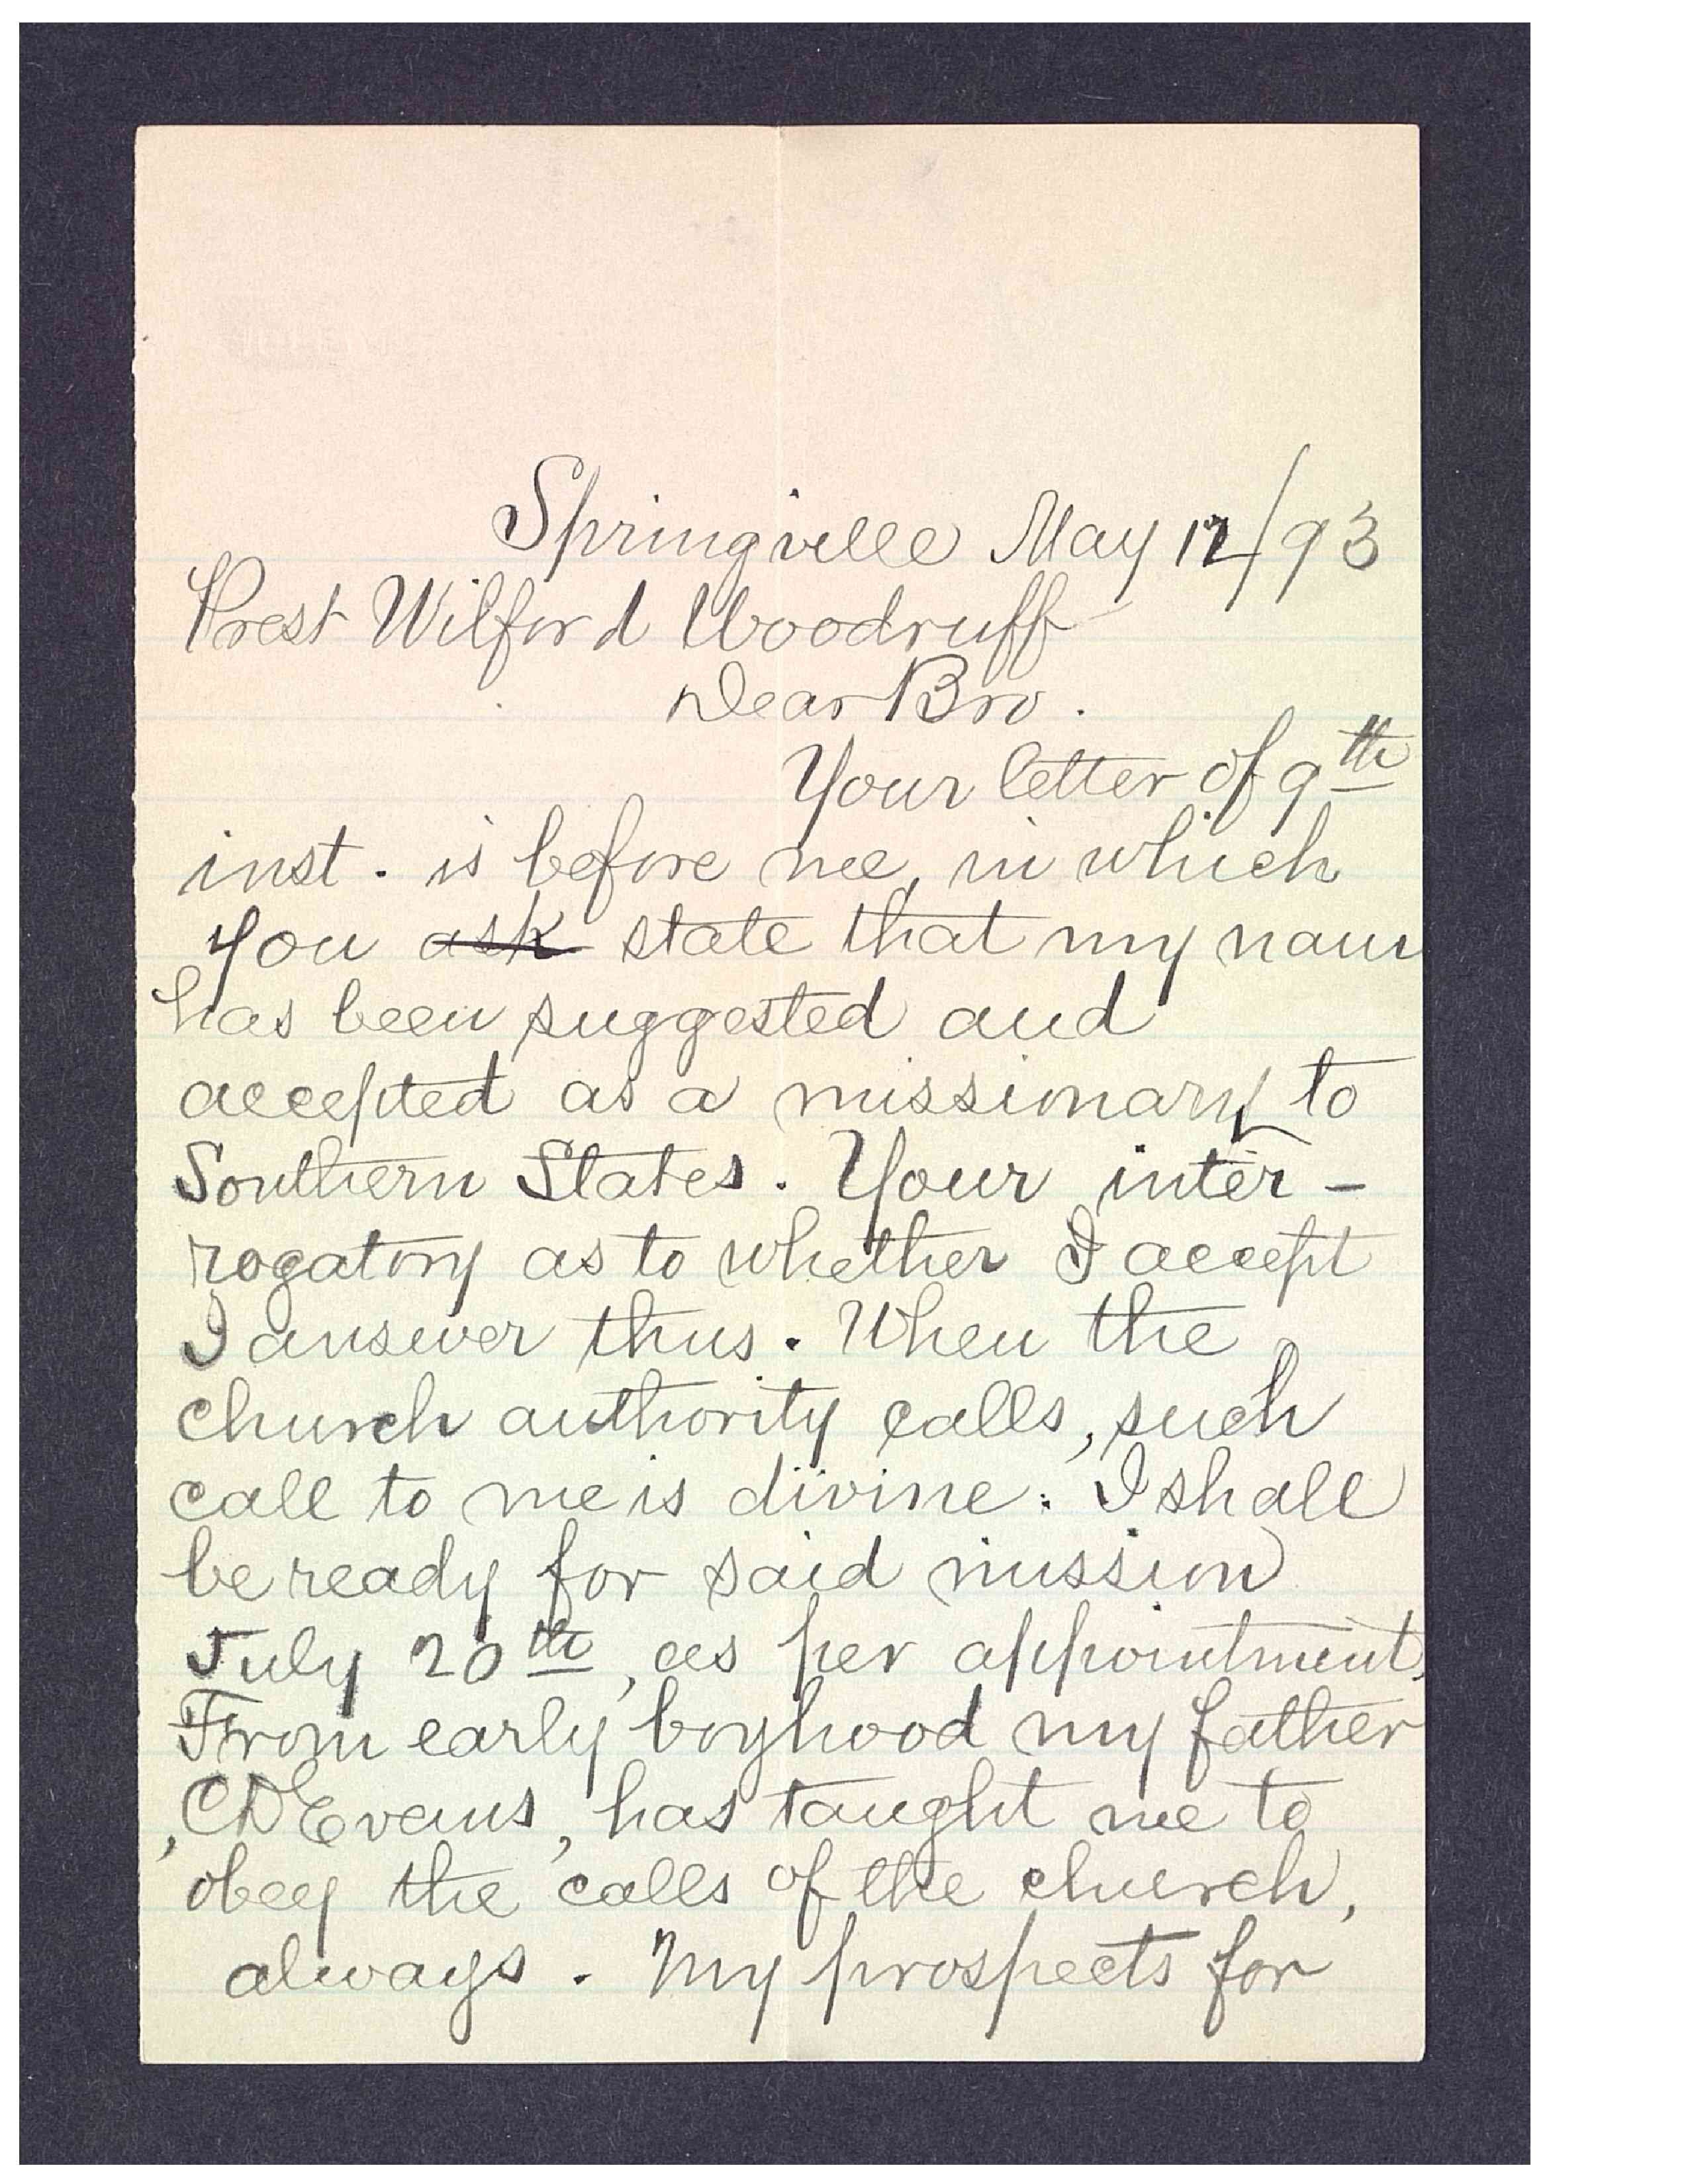 Springville May 12/93
Prest Wilford Woodruff
Dear Bro.
Your letter of 9th
inst. is before me, in which
you ~~ask~~ state that my name
has been suggested and
accepted as a missionary to
Southern States. Your inter-
rogatory as to whether I accept
I answer thus. When the
church authority calls, such
call to me is divine. I shall
be ready for said mission
July 20th, as per appointment.
From early boyhood my father
, CD Evans, has taught me to
obey the calls of the church,
always. My prospects for